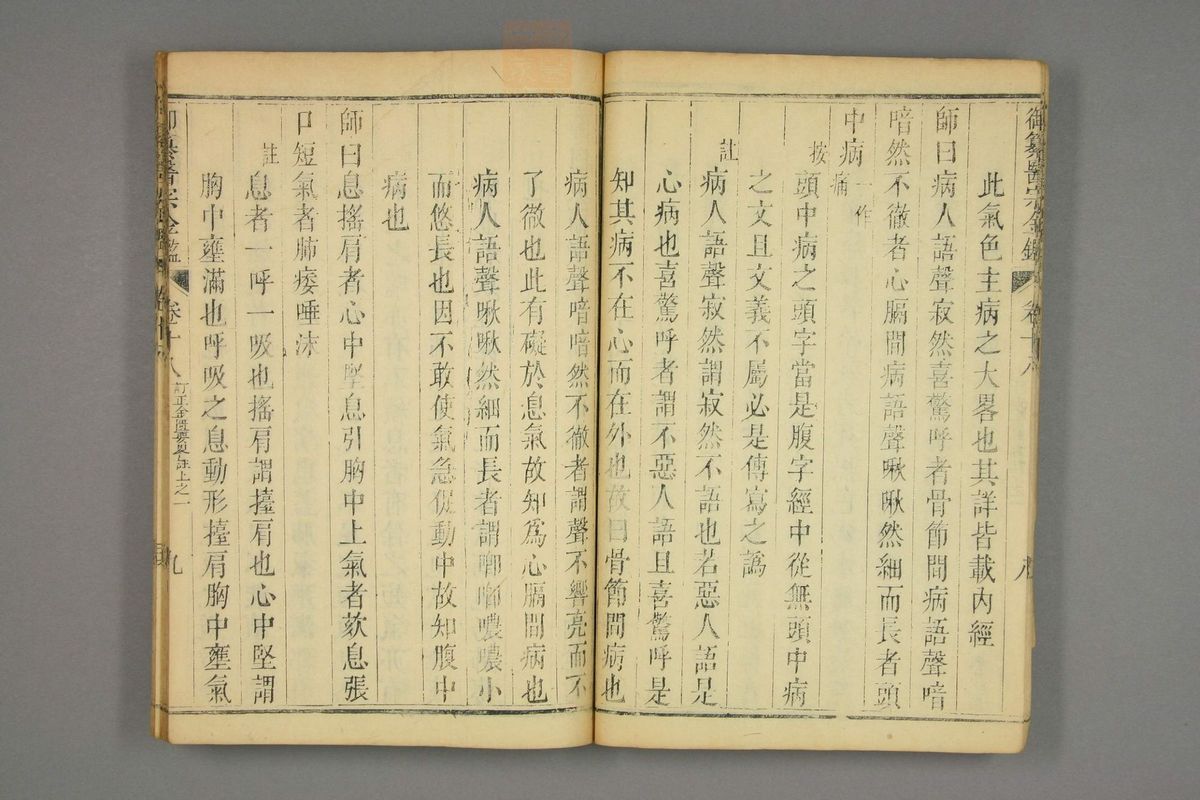 御纂醫宗金鑑 卷十八
此氣色主病之大畧也其詳皆載內經
師曰病人語聲寂然喜驚呼者骨節間病語聲喑
喑然不徹者心膈間病語聲啾啾然細而長者頭
中病一作痛
按頭中病之頭字當是腹字經中從無頭中病
之文且文義不屬必是傳寫之譌
註病人語聲寂然謂寂然不語也若惡人語是
心病也喜驚呼者謂不惡人語且喜驚呼是
知其病不在心而在外也故曰骨節間病也
病人語聲喑喑然不徹者謂聲不響亮而不
了徹也此有礙於息氣故知爲心膈間病也
病人語聲啾啾然細而長者謂唧唧噥噥小
而悠長也因不敢使氣急促動中故知腹中
病也
師曰息搖肩者心中堅息引胸中上氣者欬息張
口短氣者肺痿唾沫
註息者一呼一吸也搖肩謂擡肩也心中堅謂
胸中壅滿也呼吸之息動形擡肩胸中壅氣
御纂醫宗金鑑 卷十八 訂正金匱要畧註上之一 九